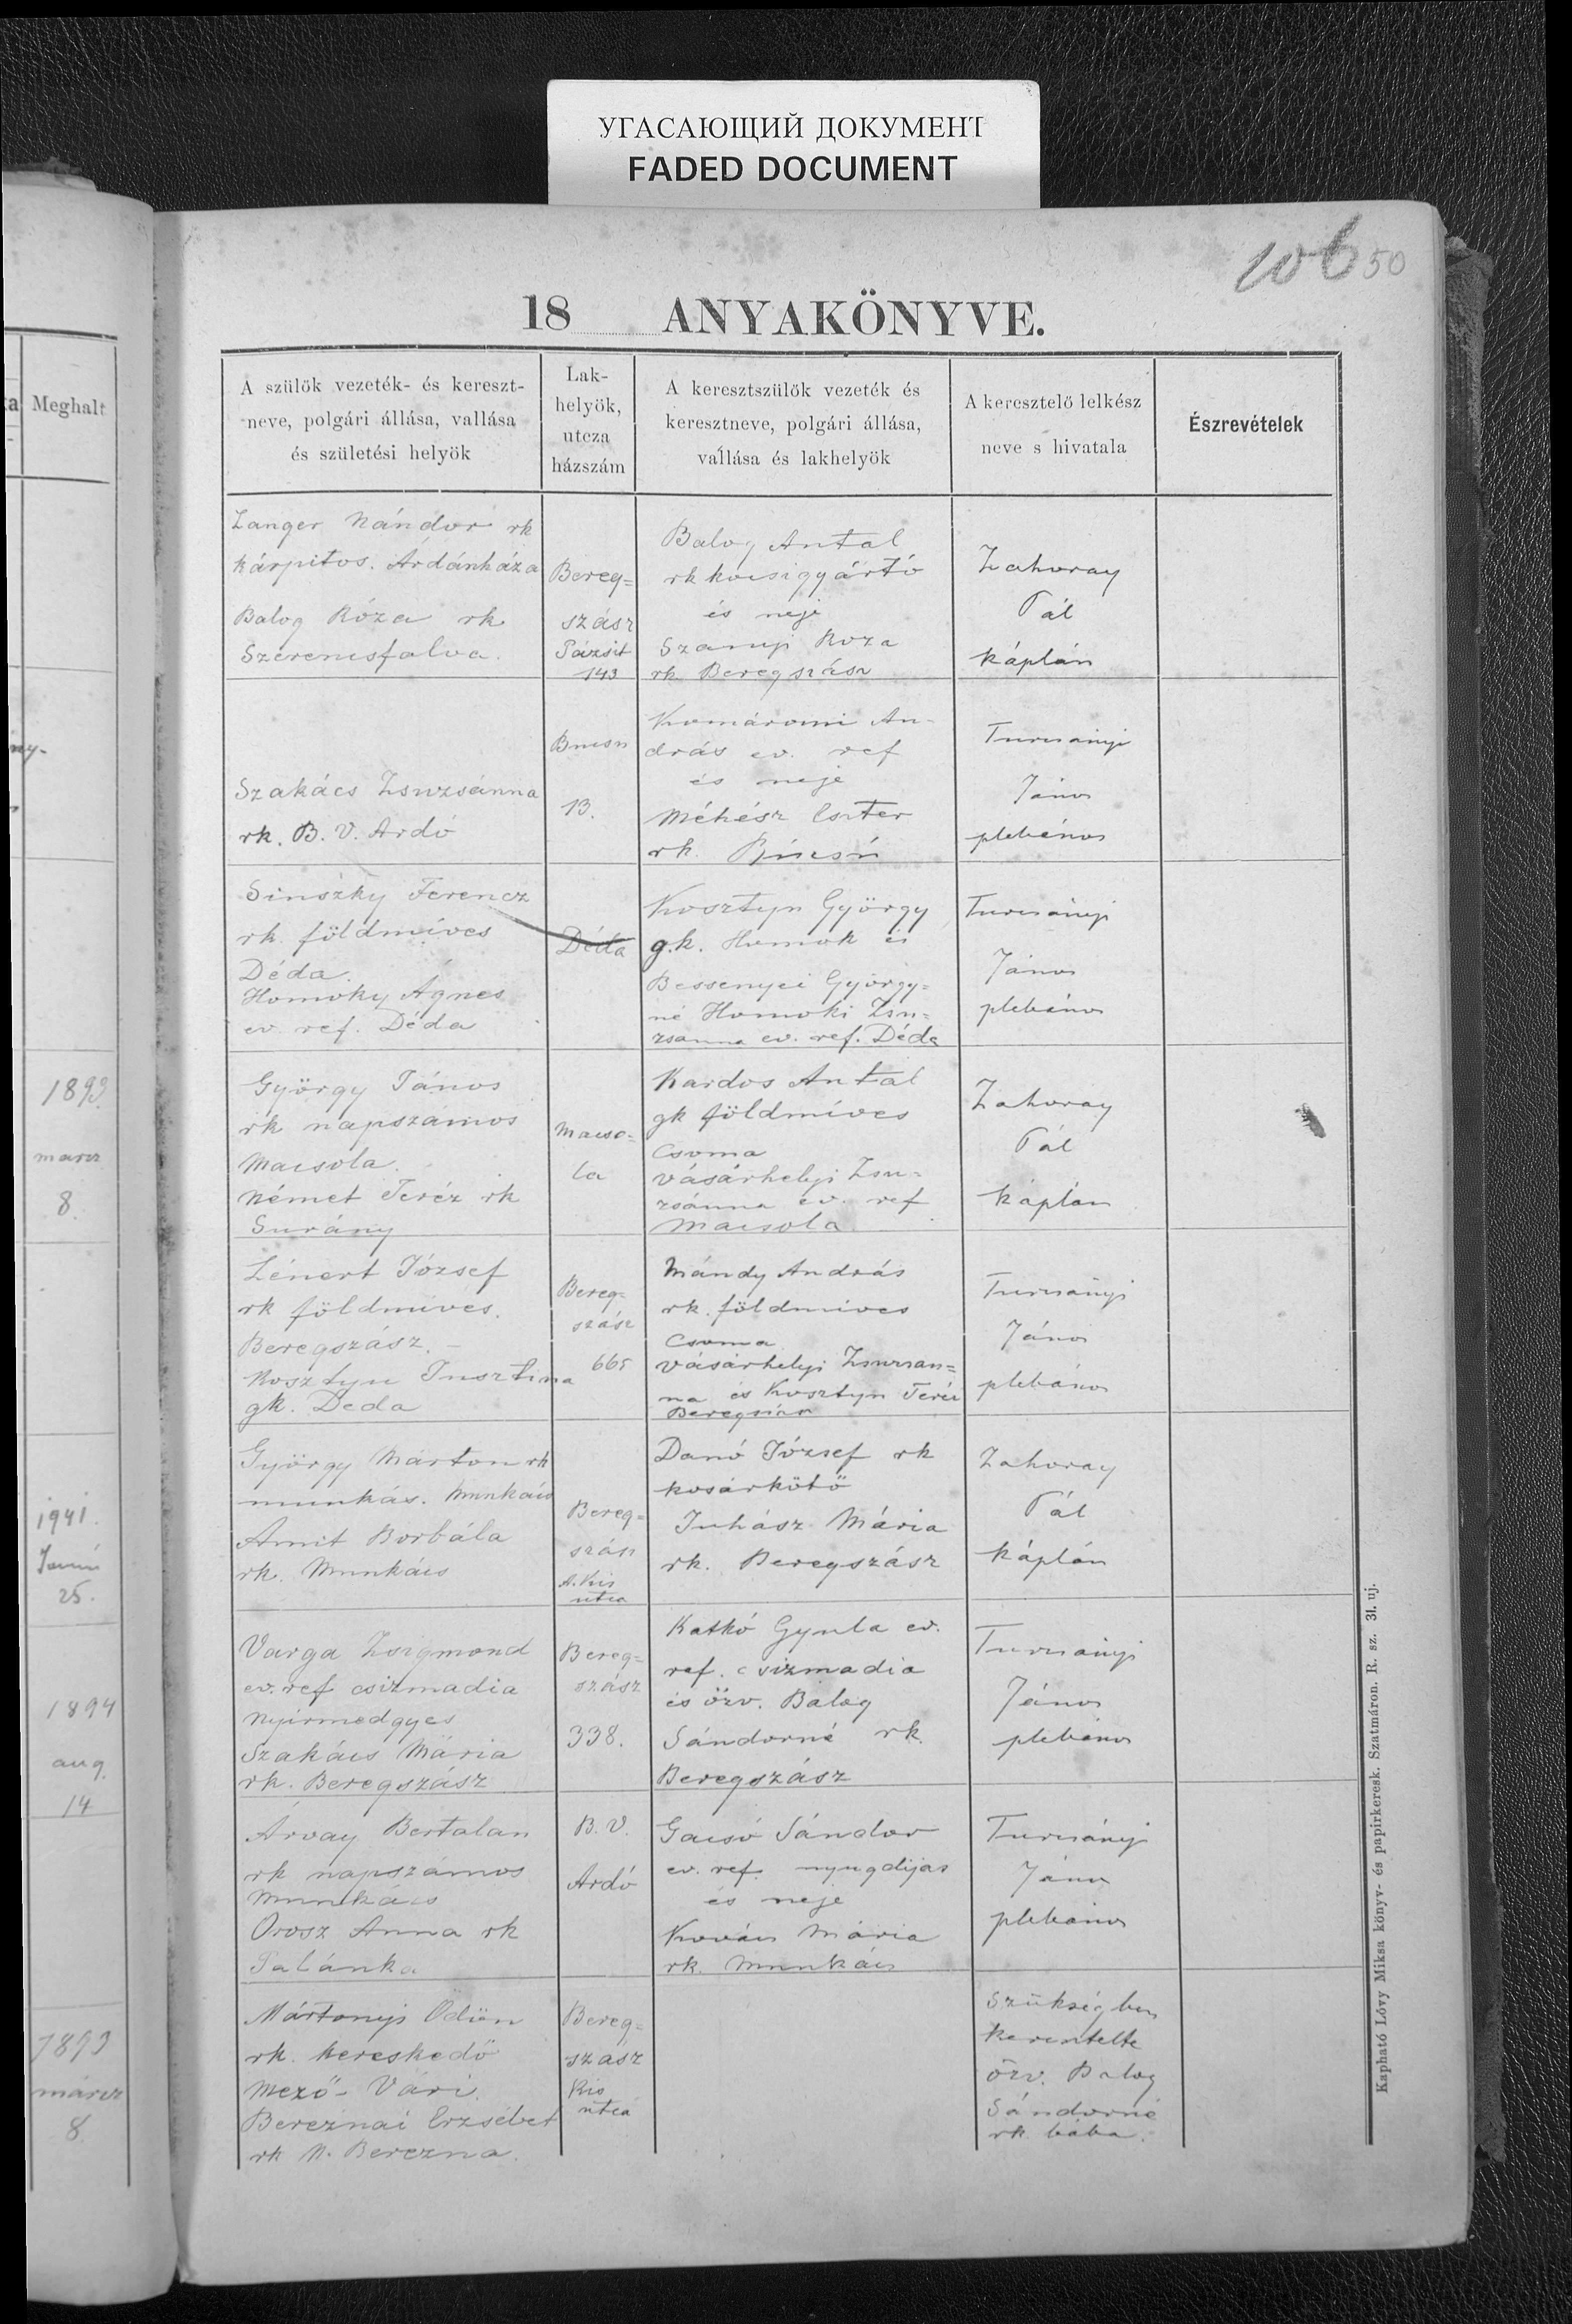 УГАСАЮЩИЙ ДОКУМЕНТ
FADED DOCUMENT
106 50
18 ANYAKÖNYVE.
Meghalt
1893.
marcz
8.
1941.
25.
1894
aug.
14
1893
márcz
8
A szülök vezeték- és kereszt-
neve, polgári állása, vallása
és születési helyök
Lak-
helyök,
utcza
házszám
A keresztszülök vezeték és
keresztneve, polgári állása,
vallása és lakhelyök
A keresztelö lelkész
neve s hivatala
Észrevételek
Zanger Nándor rk
kárpitos. Árdánháza
Balog Róza rk
Szerencsfalva.
Bereg=
szász
Pázsit
143
Balog Antal
rk kocsigyártó
és neje
Szanyi Roza
rk Beregszász
Zahoray
Pál
káplán
Szakács Zsuzsánna
rk. B. V. Ardó
Bucsu
13.
Komáromi An-
drás ev. ref
és neje
Méhész Eszter
rk. Búcsú
Turcsányi
János
plebános
Sinszky Ferencz
rk. földmíves
Déda.
Homoky Ágnes
ev. ref. Déda
Déda
Kosztyn György
g.k. Homok és
Bessenyei György=
né Homoki Zsu=
zsanna ev. ref. Déda
Turcsányi
János
plebános
György János
rk napszámos
Macsola.
Német Teréz rk
Surány
Macso=
la
Kardos Antal
gk földmíves
Csoma
Vásárhelyi Zsu=
zsánna ev. ref
Macsola
Zahoray
Pál
káplán
Lénert József
rk földmíves.
Beregszász.
Kosztyu Jusztina
gk. Deda
Bereg=
szász
665
Mándy András
rk. földmíves
Csoma
Vásárhelyi Zsuzsan=
na és Kosztyn Teréz
Beregszász
Turcsányi
János
plebános
György Márton rk
munkás. Munkács
Amit Borbála
rk. Munkács
Bereg=
szász
A. Kis
utca
Danó József rk
kosárkötő
Juhász Mária
rk. Beregszász
Zahoray
Pál
káplán
Varga Zsigmond
ev. ref csizmadia
Nyirmedgyes
Szakács Mária
rk. Beregszász
Bereg=
szász
338.
Katkó Gyula ev.
ref. csizmadia
és özv. Balog
Sándorné rk.
Beregszász
Turcsányi
János
plebános
Árvay Bertalan
rk napszámos
Munkács
Orosz Anna rk
Palánka
B. V.
Ardó
Gacsó Sándor
ev. ref. nyugdijas
és neje
Kovács Mária
rk. Munkács
Turcsányi
János
plebános
Mártonyi Ödön
rk. kereskedő
Mező-Vári.
Bereznai Erzsébet
rk N. Berezna.
Bereg=
szász
Kis
utca
Szükségben
keresztelte
özv. Balog
Sándorné
rk bába.
Kapható Lövy Miksa könyv- és papirkeresk. Szatmáron. R. sz. 31. uj.